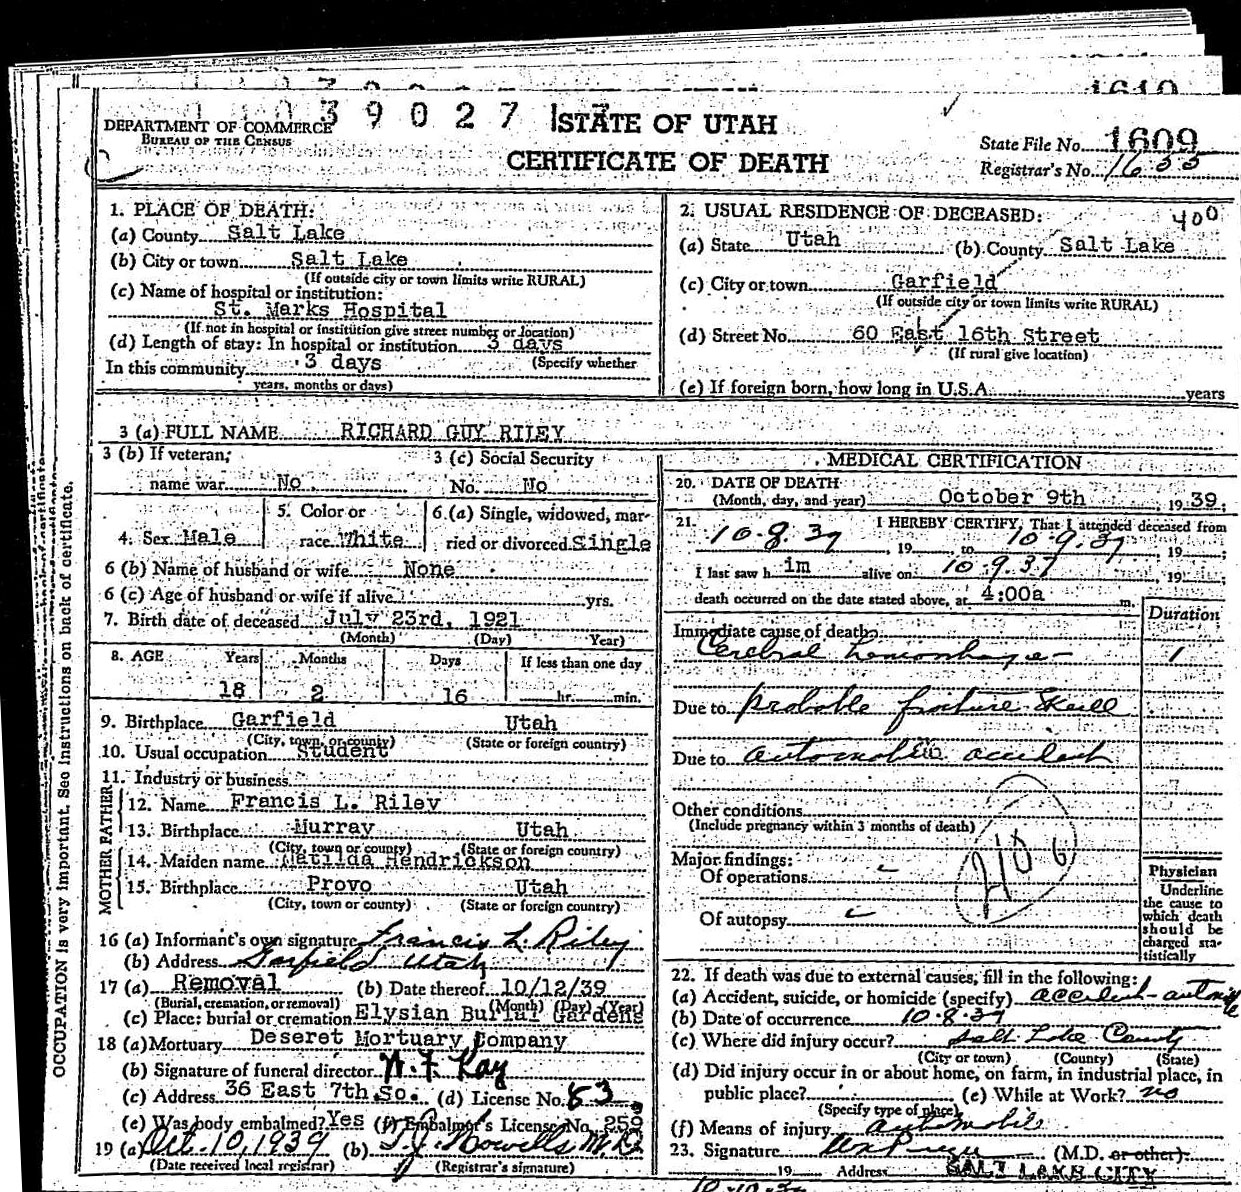 1619
39027
DEPARTMENT OF COMMERCE
BUREAU OF THE CENSUS
STATE OF UTAH
CERTIFICATE OF DEATH
State File No. 1609
Registrar's No. 1655
1. PLACE OF DEATH:
(a) County Salt Lake
(b) City or town Salt Lake
(If outside city or town limits write RURAL)
(c) Name of hospital or institution:
St. Marks Hospital
(If not in hospital or institution give street number or location)
(d) Length of stay: In hospital or institution 3 days
In this community 3 days (Specify whether
years, months or days)
2. USUAL RESIDENCE OF DECEASED: 400
(a) State Utah (b) County Salt Lake
(c) City or town Garfield
(If outside city or town limits write RURAL)
(d) Street No. 60 East 16th Street
(If rural give location)
(e) If foreign born, how long in U.S.A. years
3 (a) FULL NAME RICHARD GUY RILEY
3 (b) If veteran, 3 (c) Social Security
name war No No. No
4. Sex Male 5. Color or race White 6. (a) Single, widowed, married or divorced Single
6 (b) Name of husband or wife None
6 (c) Age of husband or wife if alive yrs.
7. Birth date of deceased July 23rd, 1921
(Month) (Day) Year)
8. AGE Years Months Days If less than one day
18 2 16 hr. min.
9. Birthplace Garfield Utah
(City, town, or county) (State or foreign country)
10. Usual occupation Student
11. Industry or business
FATHER
12. Name Francis L. Riley
13. Birthplace Murray Utah
(City, town or county) (State or foreign country)
MOTHER
14. Maiden name Matilda Hendrickson
15. Birthplace Provo Utah
(City, town or county) (State or foreign country)
16 (a) Informant's own signature Francis L. Riley
(b) Address Garfield Utah
17 (a) Removal (b) Date thereof 10/12/39
(Burial, cremation, or removal) (Month) (Day) (Year)
(c) Place: burial or cremation Elysian Burial Gardens
18 (a) Mortuary Deseret Mortuary Company
(b) Signature of funeral director
(c) Address 36 East 7th So. (d) License No. 83
(e) Was body embalmed? Yes (f) Embalmer's License No.
19 (a) Oct. 10, 1939 (b) T. J. Howells M.D.
(Date received local registrar) (Registrar's signature)
MEDICAL CERTIFICATION
20. DATE OF DEATH
(Month, day, and year) October 9th 1939;
21. I HEREBY CERTIFY, That I attended deceased from
10-8-39, 19 to 10-9-39, 19 ;
I last saw h im alive on 10-9-39, 19 ;
death occurred on the date stated above, at 4:00a m.
Duration
Immediate cause of death
Cerebral hemorrhage 1
Due to probable fracture skull
Due to automobile accident
Other conditions
(Include pregnancy within 3 months of death)
Major findings:
Of operations
Of autopsy
210 6
Physician
Underline
the cause to
which death
should be
charged sta-
tistically
22. If death was due to external causes, fill in the following:
(a) Accident, suicide, or homicide (specify) accident-automobile
(b) Date of occurrence 10-8-39
(c) Where did injury occur? Salt Lake County
(City or town) (County) (State)
(d) Did injury occur in or about home, on farm, in industrial place, in
public place? (e) While at Work? no
(Specify type of place)
(f) Means of injury automobile
23. Signature (M.D. or other)
19 Address SALT LAKE CITY
OCCUPATION is very important. See instructions on back of certificate.